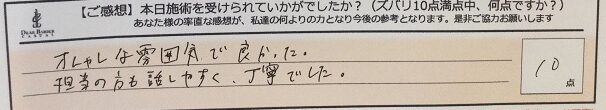 【ご感想】本日施術を受けられていかがでしたか？（ズバリ10点満点中、何点ですか？）
あなた様の率直な感想が、私達の何よりの力となり今後の参考となります。是非ご協力お願いします
DEAR BARBER
オシャレな雰囲気で良かった。
担当の方も話しやすく、丁寧でした。
10
点